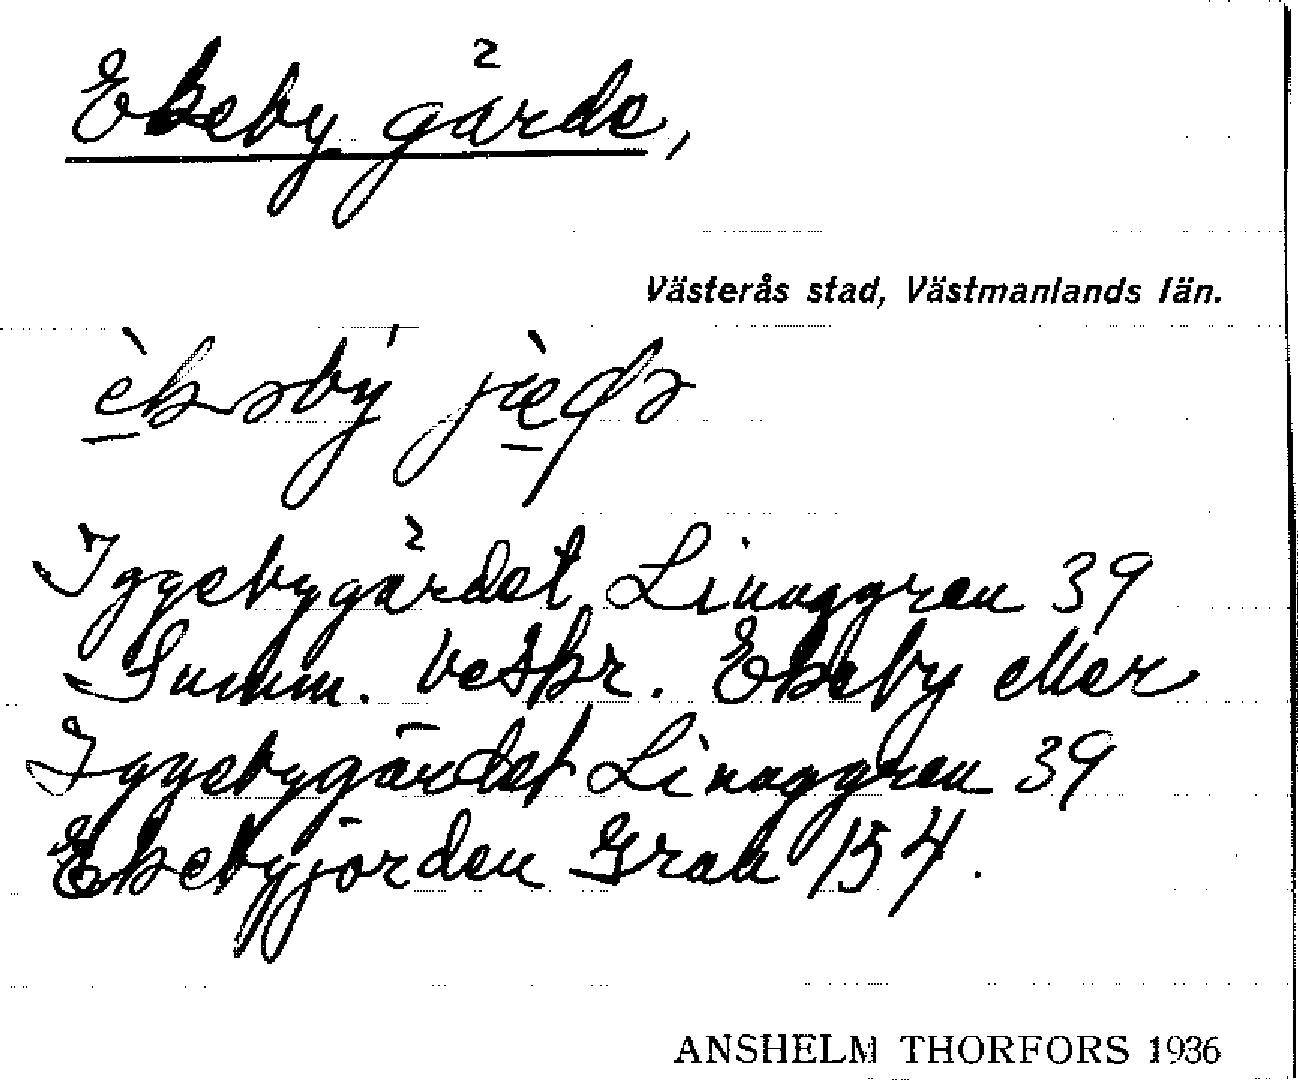 Ekeby gärde,
Västerås stad, Västmanlands län.
Iggebygärdet Linnggren 39
Summ. beskr. Ekeby eller
Iggebygärdet Linnggren 39
Ekebyjorden Grau 154.
ANSHELM THORFORS 1936